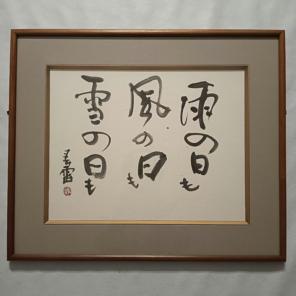 雨の日も
風の日も
雪の日も